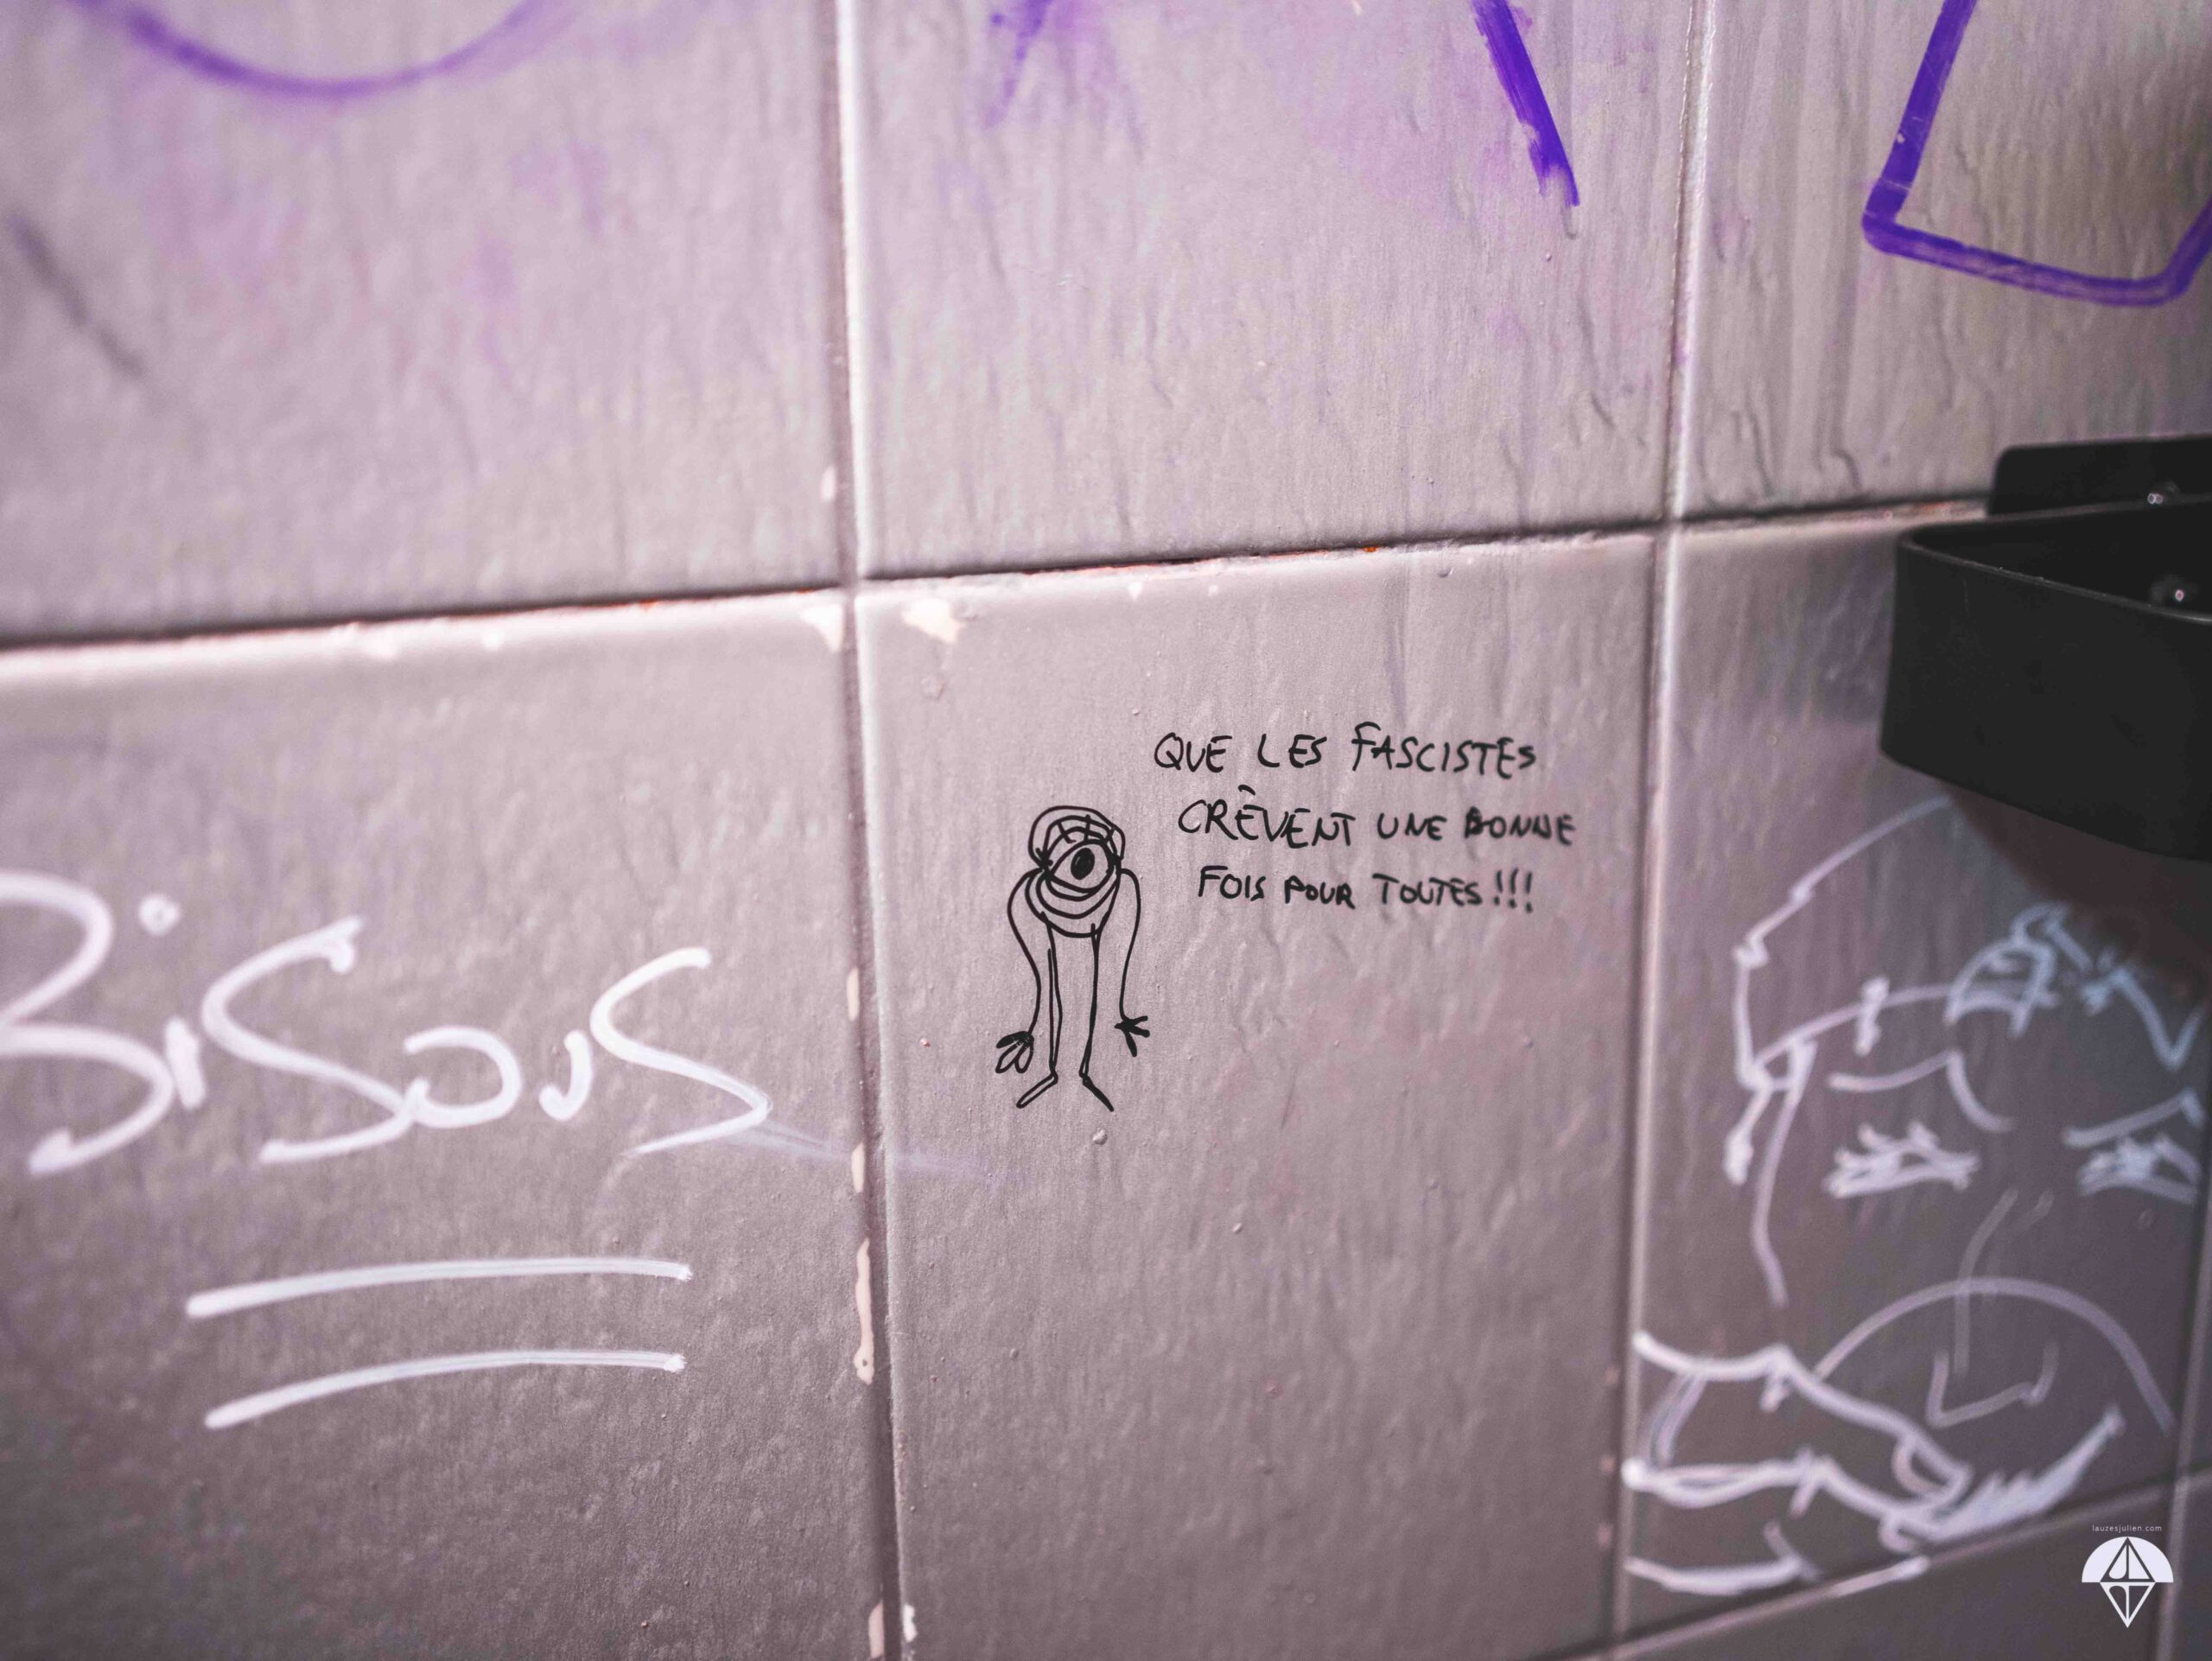 QUE LES FASCISTES
CRÈVENT UNE BONNE
FOIS POUR TOUTES!!!
BiSouS
lauzesjulien.com